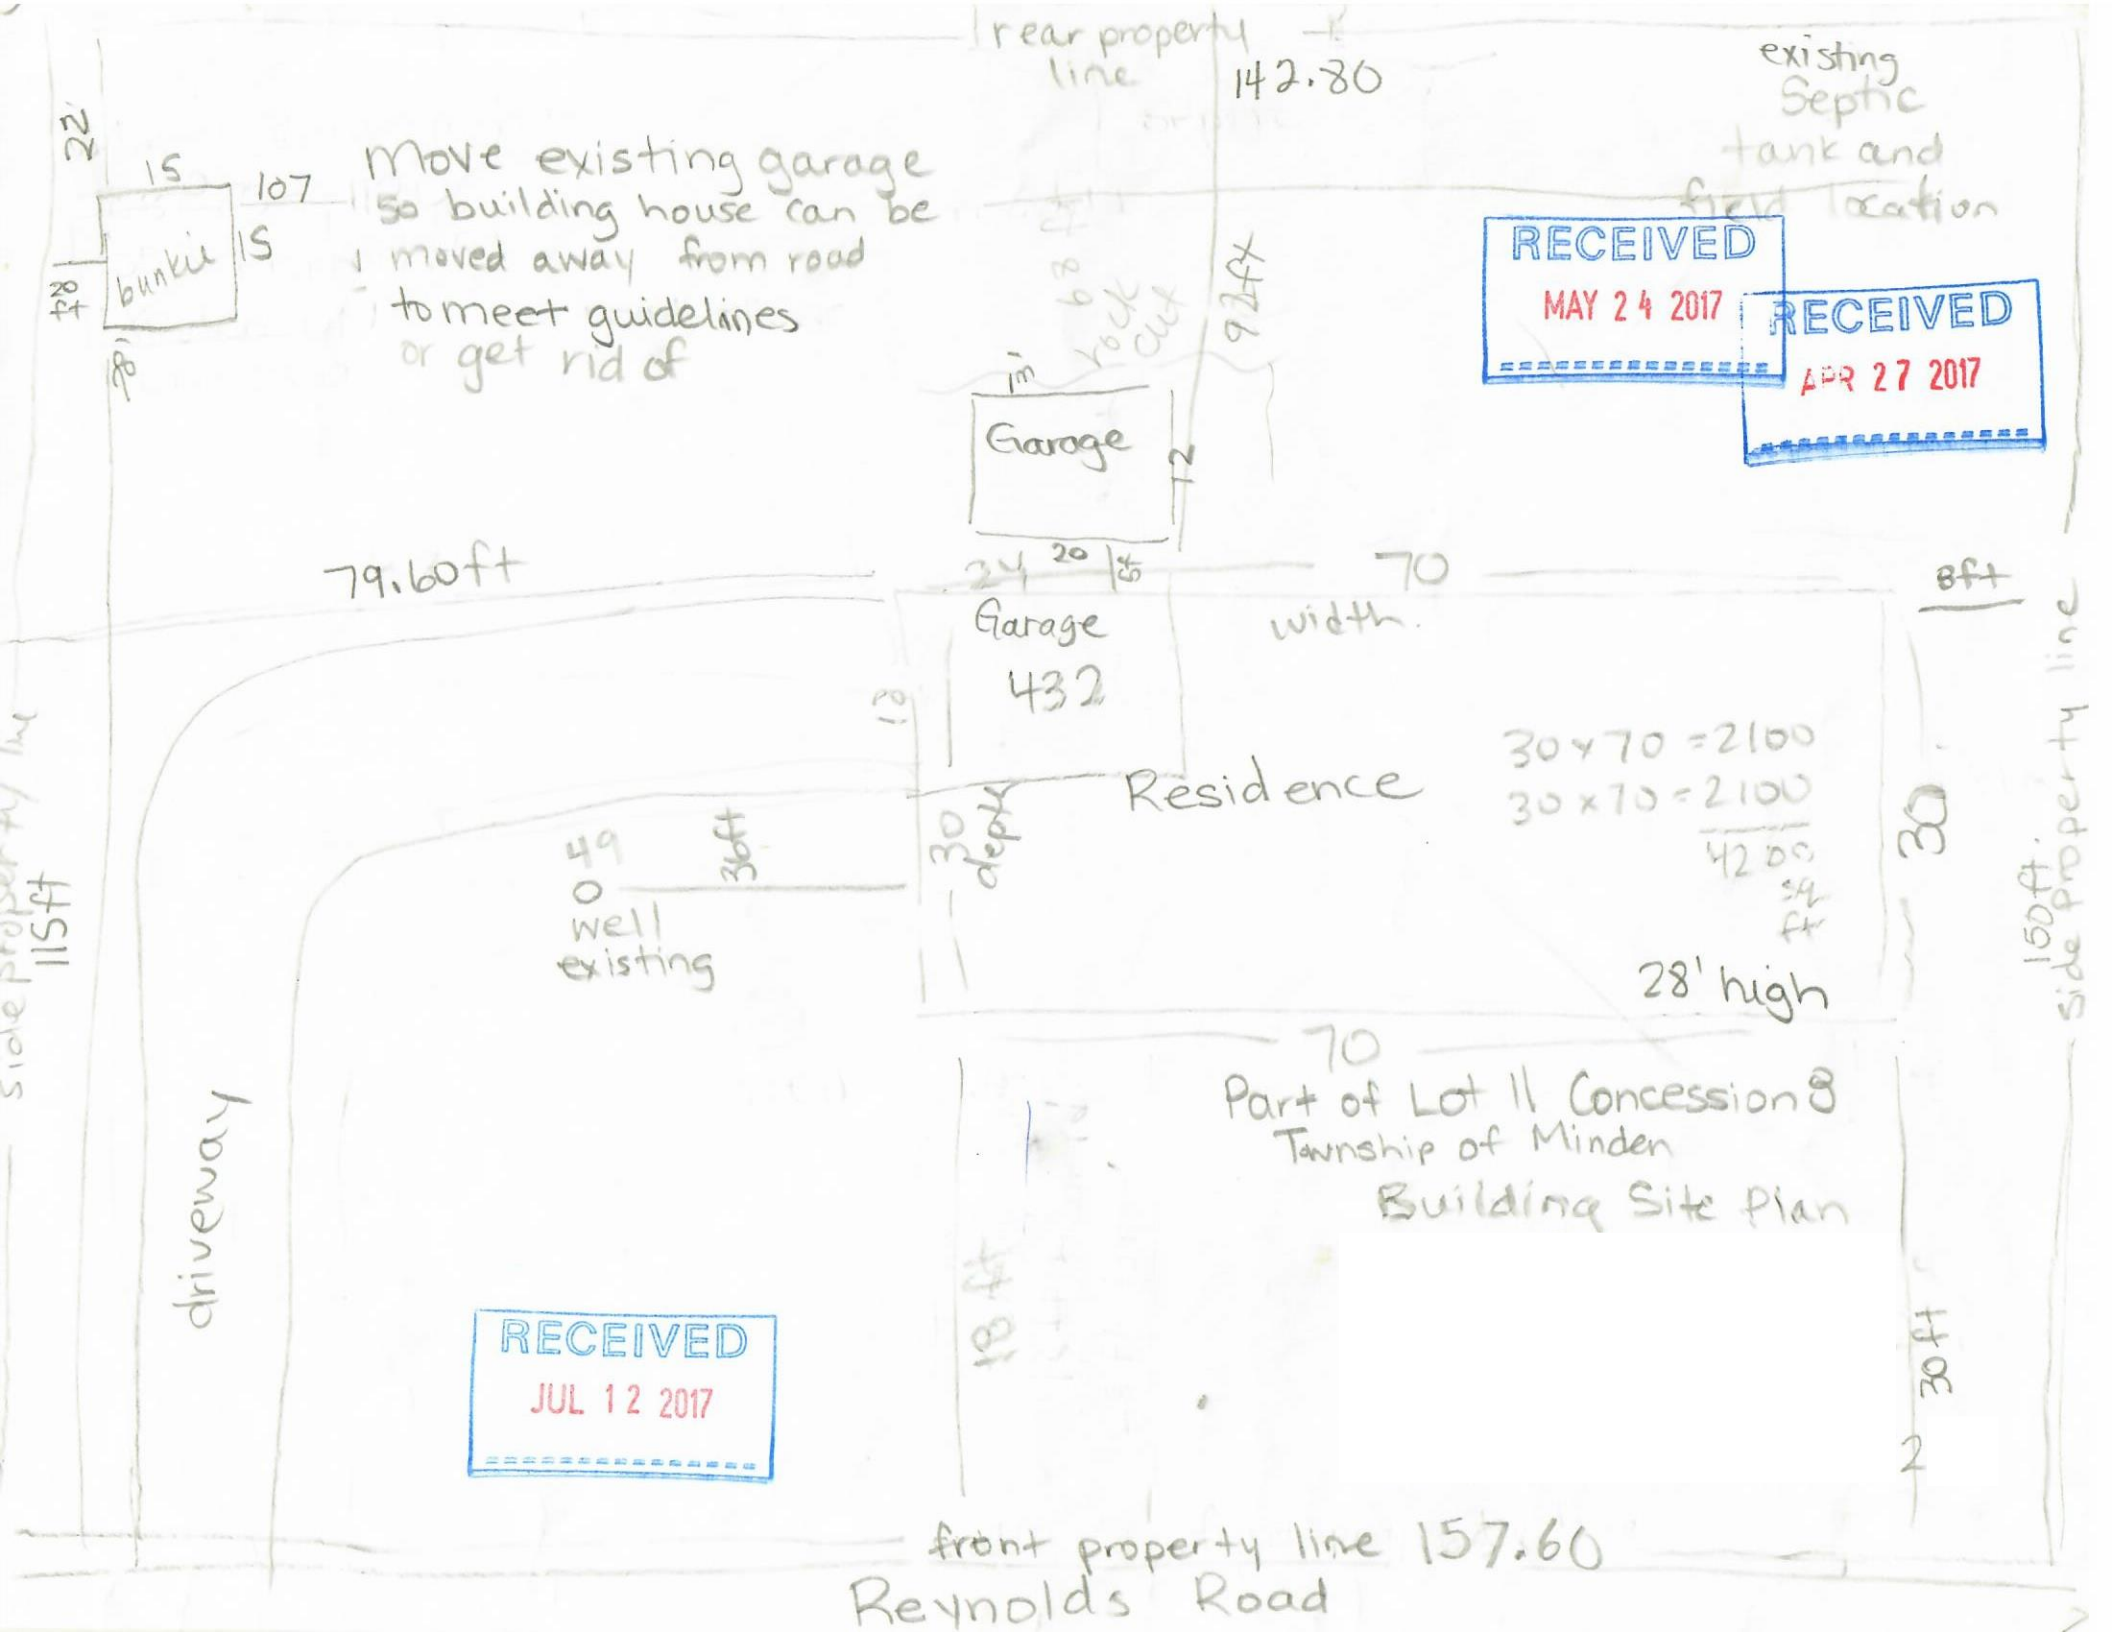 rear property
line
142.80
existing
Septic
tank and
field location
22
15
107
15
bunkie
20
ft
move existing garage
so building house can be
moved away from road
to meet guidelines
or get rid of
rock
cut
92ft
RECEIVED
MAY 24 2017
RECEIVED
APR 27 2017
Garage
12
24
20
5ft
79.60ft
70
width
8ft
Garage
432
18
Residence
30
depth
30x70=2100
30x70=2100
4200
sq
ft
30
28' high
49
36ft
well
existing
side property line
115ft
150ft.
side property line
70
Part of Lot 11 Concession 8
Township of Minden
Building Site Plan
driveway
18 ft
30ft
2
RECEIVED
JUL 12 2017
front property line 157.60
Reynolds Road